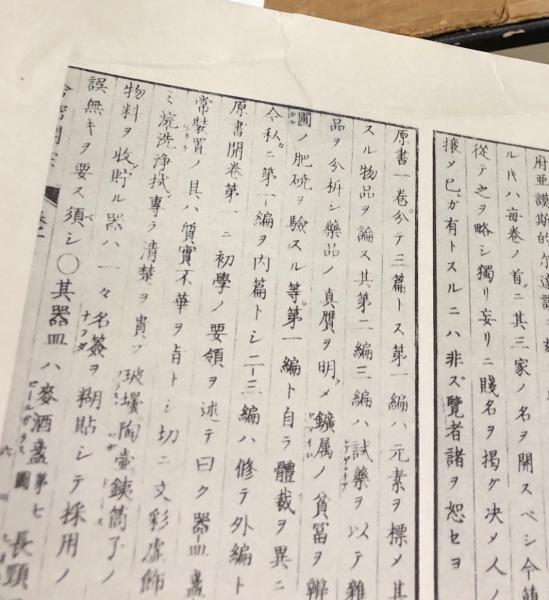 府亜
ル氏ハ毎巻ノ首ニ其三家ノ名ヲ開スベシ今
從テ之ヲ略シ獨リ妄リニ賤名ヲ掲グ决メ人ノ
掠メ已ガ有トスルニハ非ズ覧者諸ヲ恕セヨ
原書一巻分テ三篇トス第一編ハ元素ヲ標メ其
スル物品ヲ論ス其第二編三編ハ試藥ヲ以テ雜
品ヲ分析シ藥品ノ真贋ヲ明メ鑛属ノ貧冨ヲ辨
圃ノ肥磽ヲ驗スル等第一編ト自ラ體裁ヲ異ニ
今私ニ第一編ヲ内篇トシ二三編ハ修テ外編ト
原書開卷第一ニ初學ノ要領ヲ述テ曰ク器皿盞
常裝置ノ具ハ質實不華ヲ貞トシ切ニ文彩虚飾
ミ浣洗淨拭專ラ清楚ヲ貴ブ玻瓈陶壷鋏筒子ノ
物料ヲ收貯ル器ハ一々名簽ヲ糊貼シテ採用ノ
誤無キヲ要ス須ベシ〇其器皿ハ麥酒盞第七圖長頸